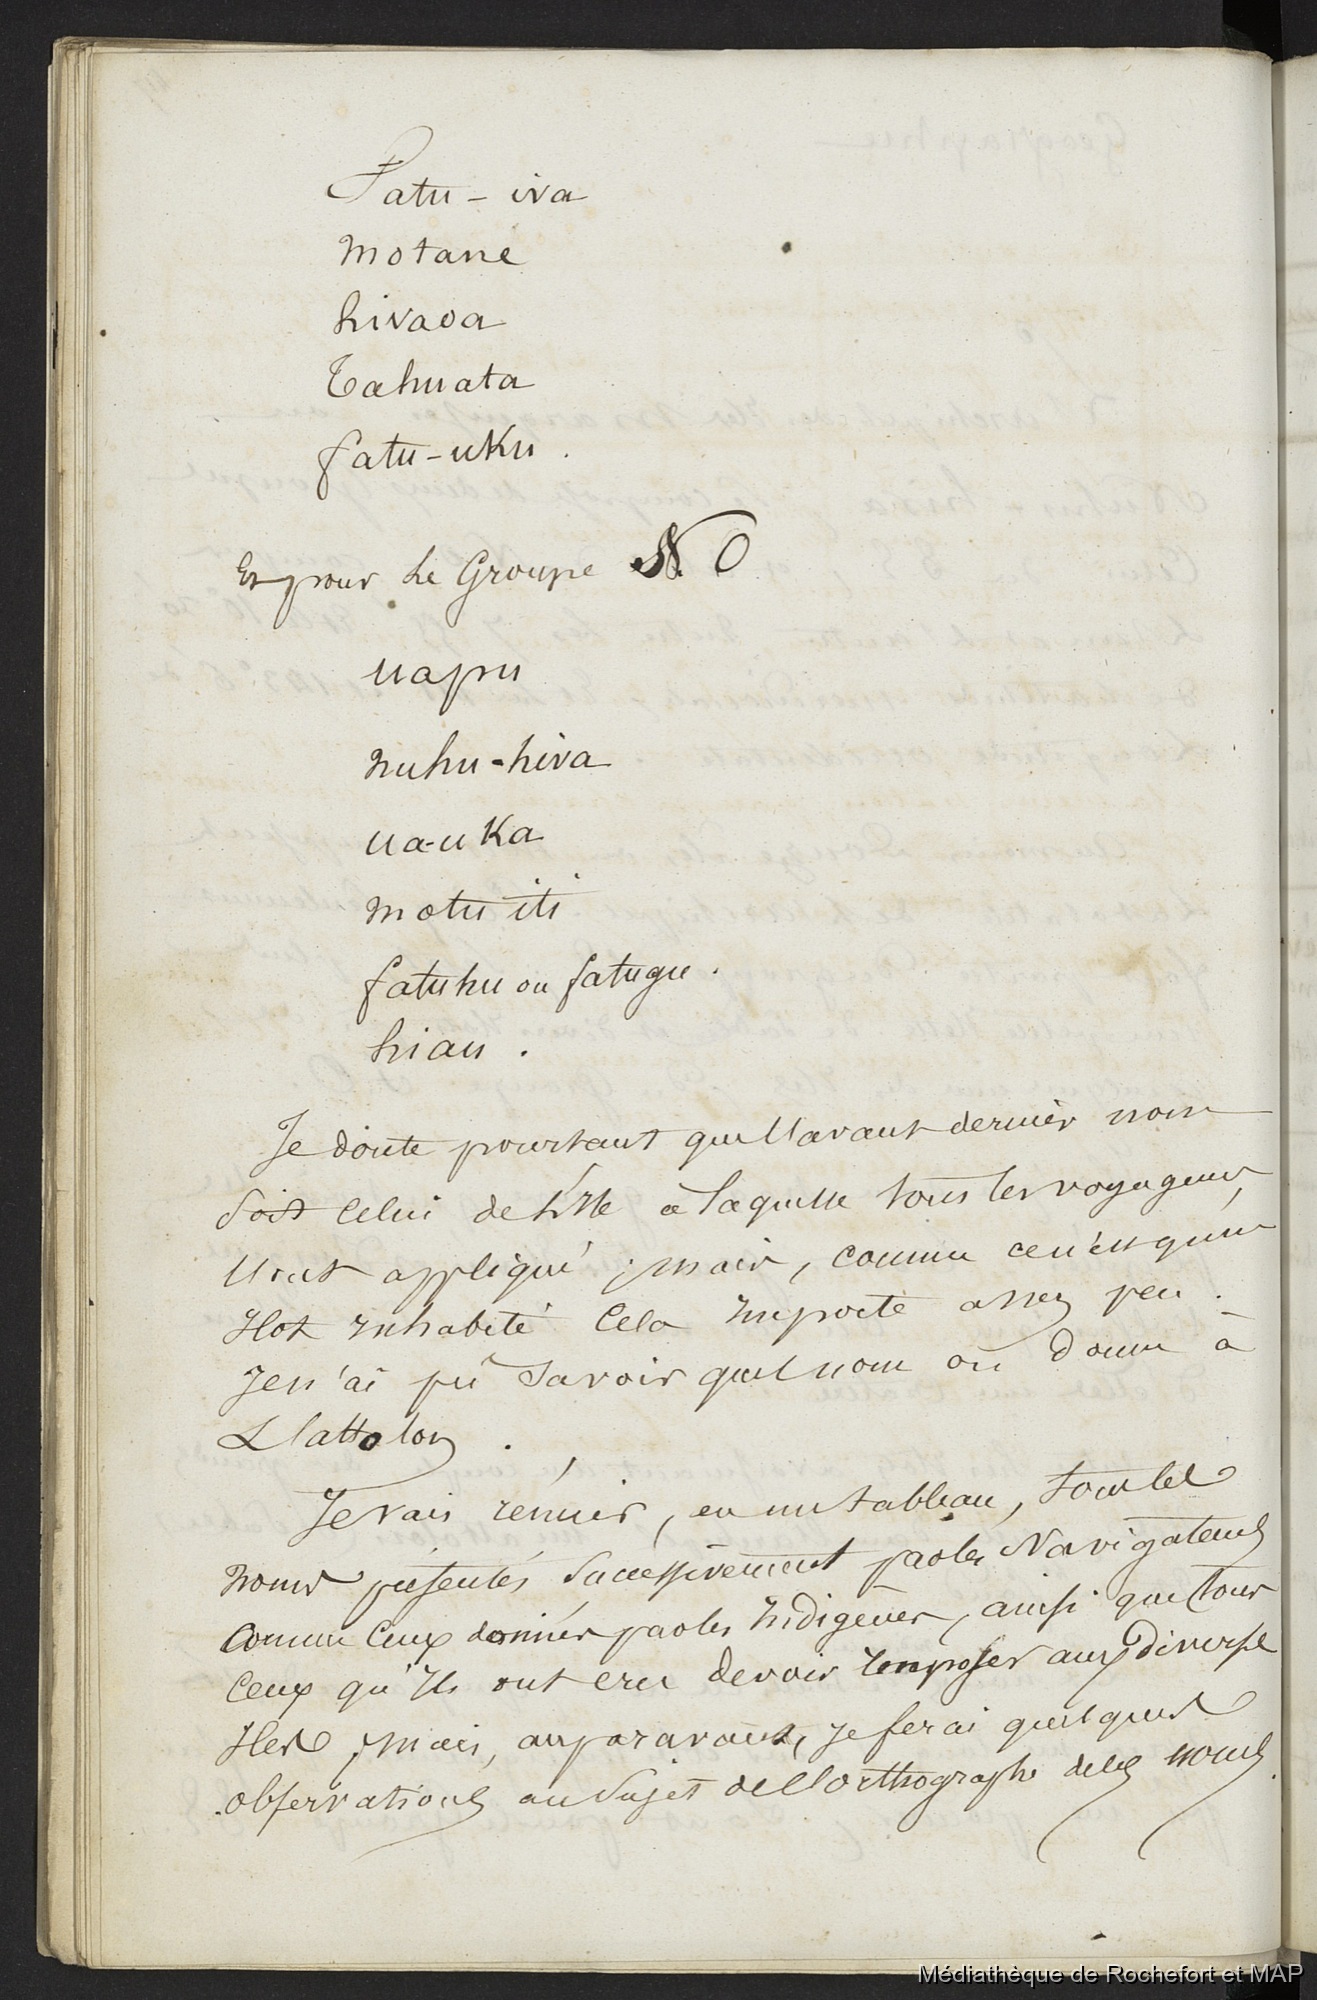 Fatu - iva
motane
hivaoa
Tahuata
fatu - uku .
Et pour le Groupe N. O
uapu
nuhu - hiva
ua-uka
motu iti
fatuhu ou fatugu .
hiau .
Je doute pourtant que l'avant dernier nom
soit celui de l'Ile à laquelle tous les voyageurs,
l'ont appliqué ; mais, comme ce n'est qu'un
Ilot inhabité cela importe assez peu .
Je n'ai pu savoir quel nom on donne à
L'attolon .
Je vais réunir, en un tableau, tous les
noms présentés successivement par les Navigateurs
comme ceux donnés par les Indigènes, ainsi que tous
ceux qu'Ils ont cru devoir imposer aux diverses
Iles ; mais, auparavant, je ferai quelques
observations au sujet de l'orthographe de ces noms.
Médiathèque de Rochefort et MAP